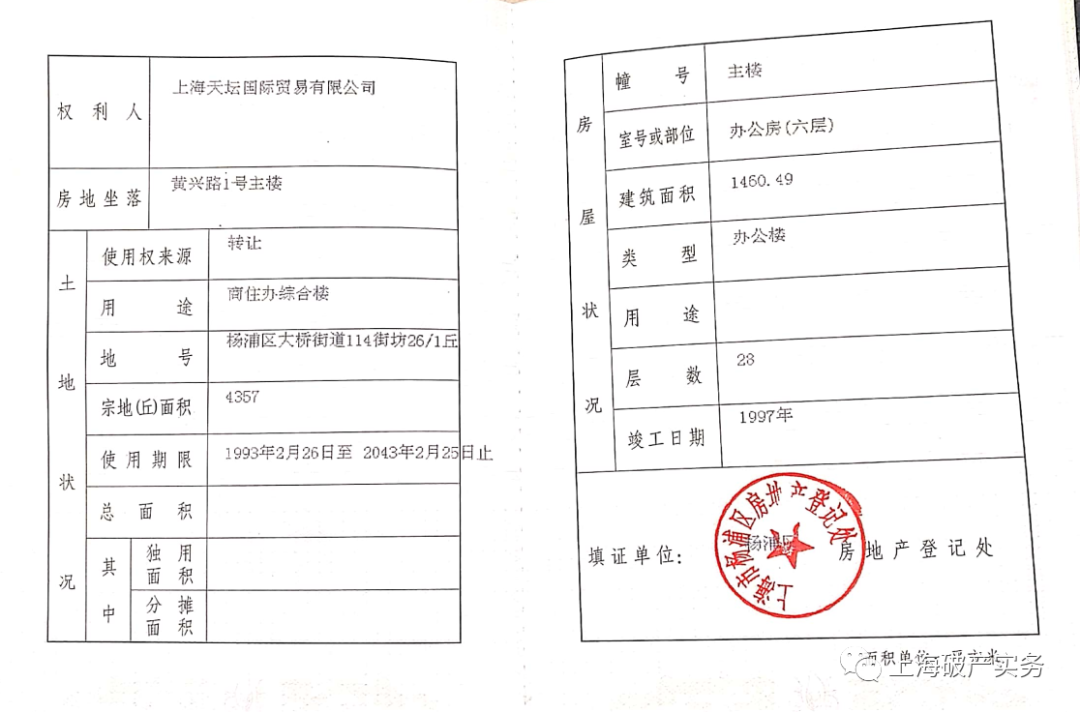 权利人
上海天坛国际贸易有限公司
房地坐落
黄兴路1号主楼
土地状况
使用权来源
转让
用途
商住办综合楼
地号
杨浦区大桥街道114街坊26/1丘
宗地(丘)面积
4357
使用期限
1993年2月26日至 2043年2月25日止
总面积
其中
独用
面积
分摊
面积
房屋状况
幢号
主楼
室号或部位
办公房(六层)
建筑面积
1460.49
类型
办公楼
用途
层数
28
竣工日期
1997年
填证单位:
杨浦区
房地产登记处
上海市杨浦区房地产登记处
面积单位:平方米
上海破产实务